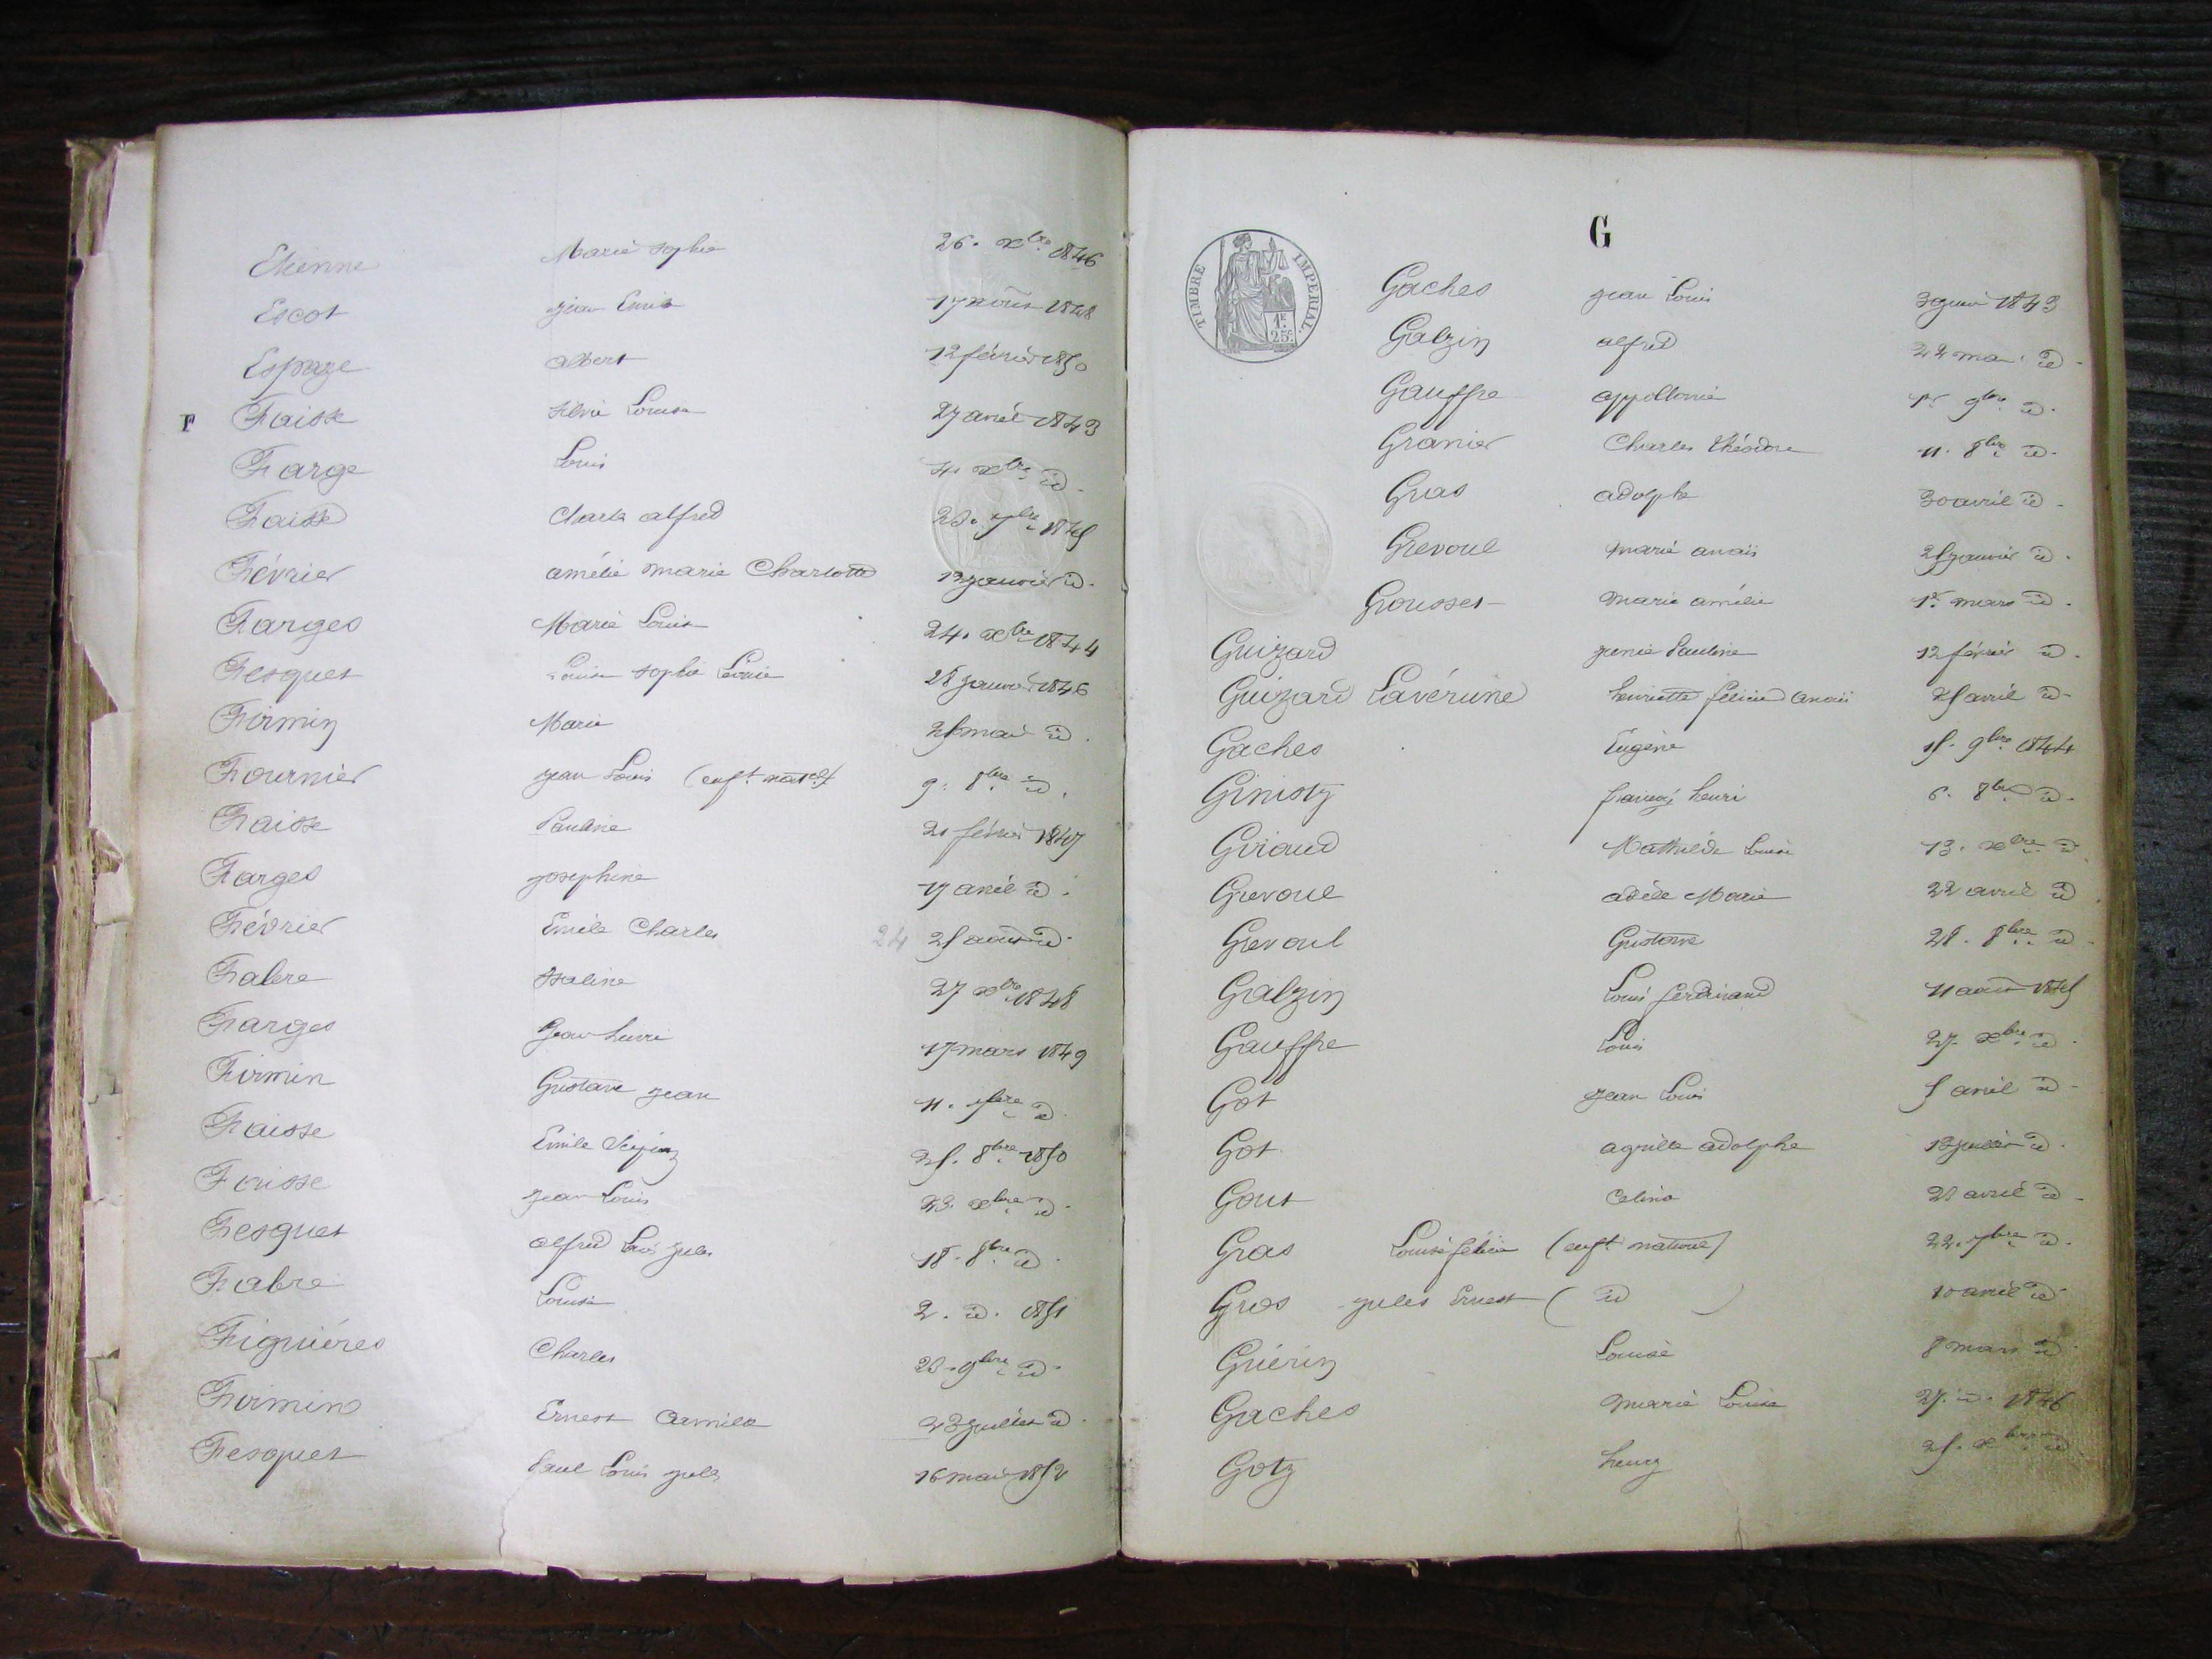 Etienne Marie Sophie 26. xbre 1846
Escot jean Emile 17 aout 1848
Espaze albert 12 février 1850
F Faisse Silvie Louise 27 avril 1843
Farge Louis 4. xbre id.
Faisse Charles alfred 7bre 1845
Février amélie marie Charlotte janvier id.
Farges Marie Louise 24. xbre 1844
Fesquet Louise Sophie 28 janvier 1846
Firmin Marie 25 mai id.
Fournier jean Louis (enft. natel) 9. 8bre id.
Faisse Pauline 21 février 1847
Farges josephine 17 avril id.
Février Emile Charles 24 25 aout id.
Fabre Rosaline 27 xbre 1848
Farges Jean henri 17 mars 1849
Firmin Gustave jean 11. 7bre id.
Faisse Emile Scipion 25. 8bre 1850
Faisse jean Louis 23. xbre id.
Fesquet alfred Louis jules 18. 8bre id.
Fabre Louise 2. id. 1851
Figuiéres Charles 9bre id.
Firmin Ernest Camille 23 juillet id.
Fesquet Paul Louis jules 16 mai 1852
G
TIMBRE IMPERIAL.
1F. 25c.
Gaches jean Louis 3 janvr 1843
Galzin alfred 22 mai id.
Gauffre appollonie 1er 9bre id.
Granier Charles théodore 11. 8bre id.
Gras adolphe 30 avril id.
Grevoul marie anaïs 25 janvier id.
Grousset marie amélie 1er mars id.
Guizard Pauline 12 février id.
Guizard Lavérune henriette félicie anaïs 25 avril id.
Gaches Eugène 15. 9bre 1844
Ginisty françois henri 6. 8bre id.
Giraud Mathilde Louise 13. xbre id.
Grevoul adèle Marie 22 avril id.
Grevoul Gustave 28. 8bre id.
Galzin Louis ferdinand 11 aout 1845
Gauffre Louis 27. xbre id.
Got jean Louis 5 avril id.
Got adolphe id.
Gout Celina avril id.
Gras Louise félicie (enft. naturel) 22. 7bre id.
Gros jules Ernest ( id ) 10 avril id.
Guérin Louise 8 mars id.
Gaches marie Louise 27. id. 1846
Gotz henry 25. xbre id.